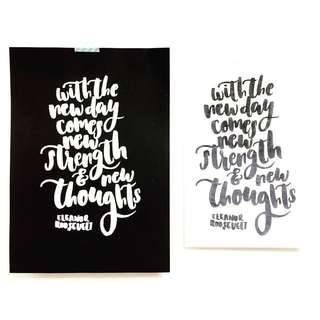 with the
new day
comes
new
strength
& new
thoughts
ELEANOR
ROOSEVELT
with the
new day
comes
new
strength
& new
thoughts
ELEANOR
ROOSEVELT